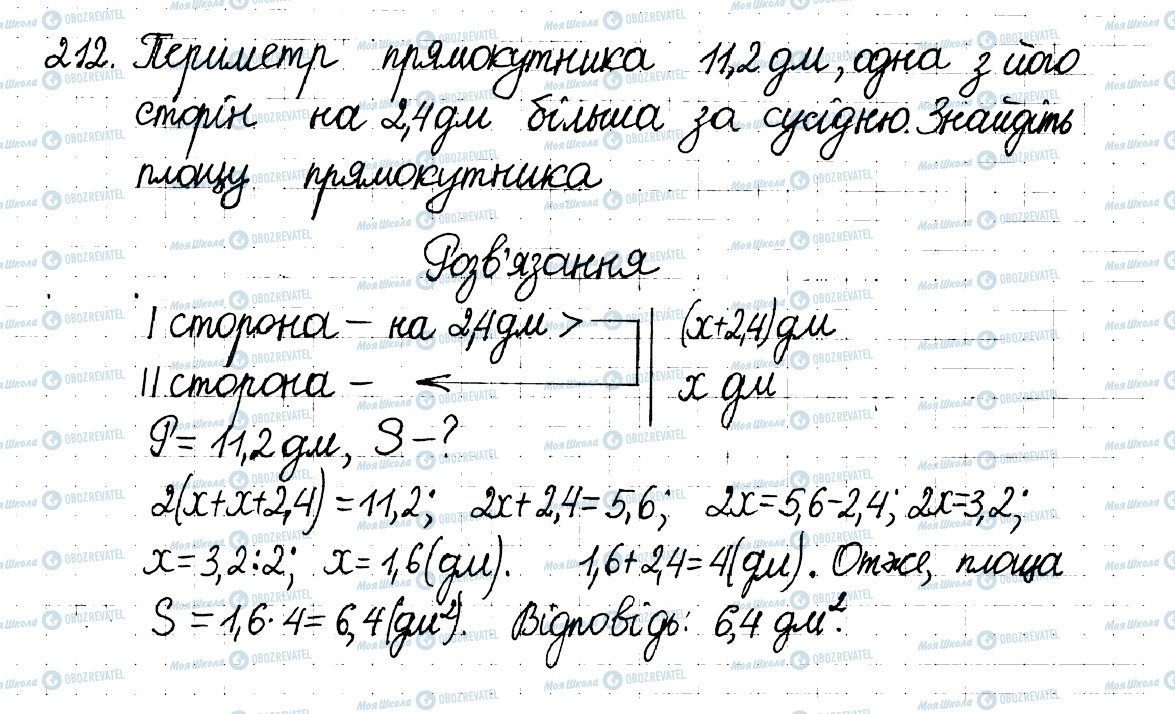 212. Периметр прямокутника 11,2 дм, одна з його
сторін на 2,4 дм більша за сусідню. Знайдіть
площу прямокутника
Розв'язання
I сторона – на 2,4 дм > (x+2,4) дм
II сторона – x дм
P = 11,2 дм, S – ?
2(x+x+2,4) = 11,2; 2x + 2,4 = 5,6; 2x = 5,6 - 2,4; 2x = 3,2;
x = 3,2 : 2; x = 1,6 (дм). 1,6 + 2,4 = 4 (дм). Отже, площа
S = 1,6 · 4 = 6,4 (дм²). Відповідь: 6,4 дм².
Моя Школа OBOZREVATEL